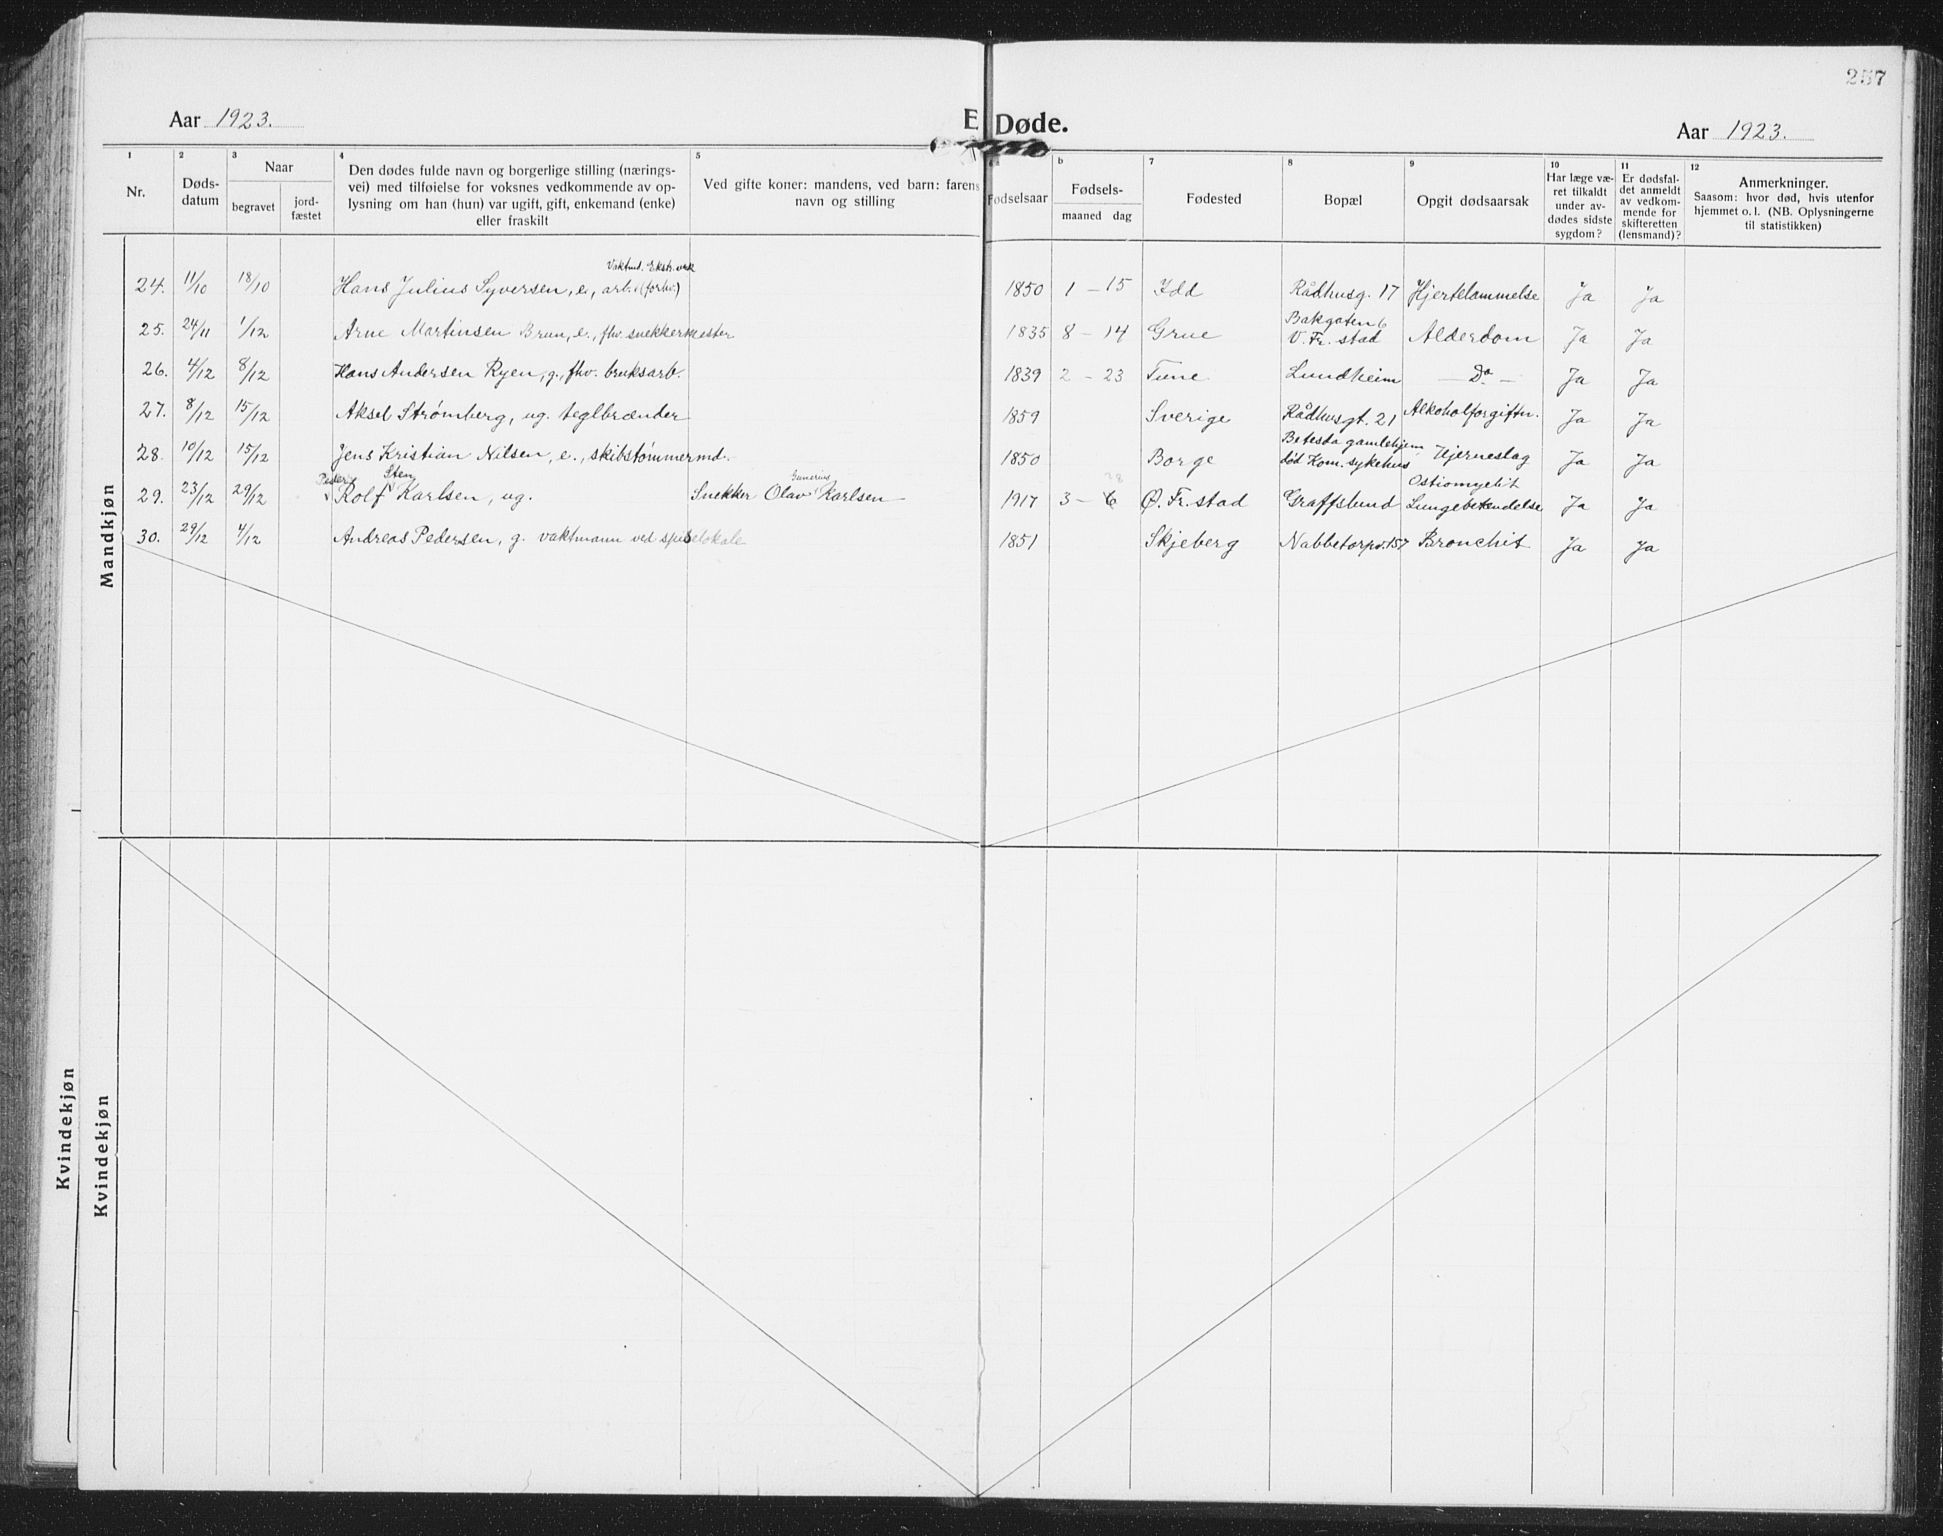 257
Aar 1923.
E Døde.
Aar 1923.
1 2 3 4 5 b 7 8 9 10 11 12
Nr.
Døds-
datum
Naar
begravet
jord-
fæstet
Den dødes fulde navn og borgerlige stilling (nærings-
vei) med tilføielse for voksnes vedkommende av op-
lysning om han (hun) var ugift, gift, enkemand (enke)
eller fraskilt
Ved gifte koner: mandens, ved barn: farens
navn og stilling
Fødselsaar
Fødsels-
maaned dag
Fødested
Bopæl
Opgit dødsaarsak
Har læge væ-
ret tilkaldt
under av-
dødes sidste
sygdom?
Er dødsfal-
det anmeldt
av vedkom-
mende for
skifteretten
(lensmand)?
Anmerkninger.
Saasom: hvor død, hvis utenfor
hjemmet o. l. (NB. Oplysningerne
til statistikken)
Mandkjøn
24. 11/10 18/10 Hans Julius Syversen, e., arb. (forhv.) 1850 1 - 15 Idd Rådhusg. 17 Hjertelammelse Ja Ja
Bakgaten 6
25. 24/11 1/12 Arne Martinsen Brun, e., fhv. snekkermester 1835 8 - 14 Grue V. Fr. stad Alderdom Ja Ja
26. 4/12 8/12 Hans Andersen Ryen, g., fhv. bruksarb. 1839 2 - 23 Tune Lundheim - Do - Ja Ja
27. 8/12 15/12 Aksel Strømberg, ug. teglbrænder 1859 Sverige Rådhusgt. 21 Alkoholforgiftn. Ja Ja
Betesda gamlehjem
28. 10/12 15/12 Jens Kristian Nilsen, e., skibstømmermd. 1850 Borge død Kom. sykehus Hjerneslag Ja Ja
Peder Sten Gunerius 28 Ostiomyelit
29. 23/12 29/12 Rolf Karlsen, ug. Snekker Olav Karlsen 1917 3 - 6 Ø. Fr. stad Graffslund Lungebetendelse Ja Ja
30. 29/12 4/12 Andreas Pedersen, g. vaktmann ved spiselokale 1851 Skjeberg Nabbetorpv. 157 Bronchit Ja Ja
Kvindekjøn
Kvindekjøn